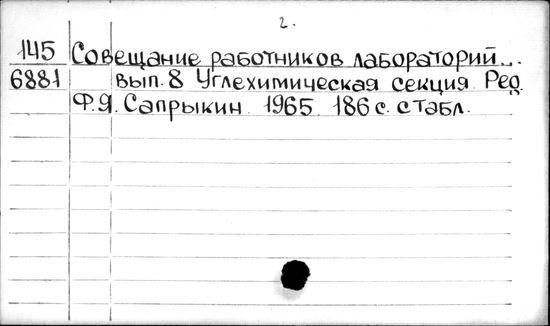 2.
145 Совещание работников лабораторий...
6881 вып. 8 Углехимическая секция. Ред.
Ф.Я. Сапрыкин. 1965. 186 с. с табл.